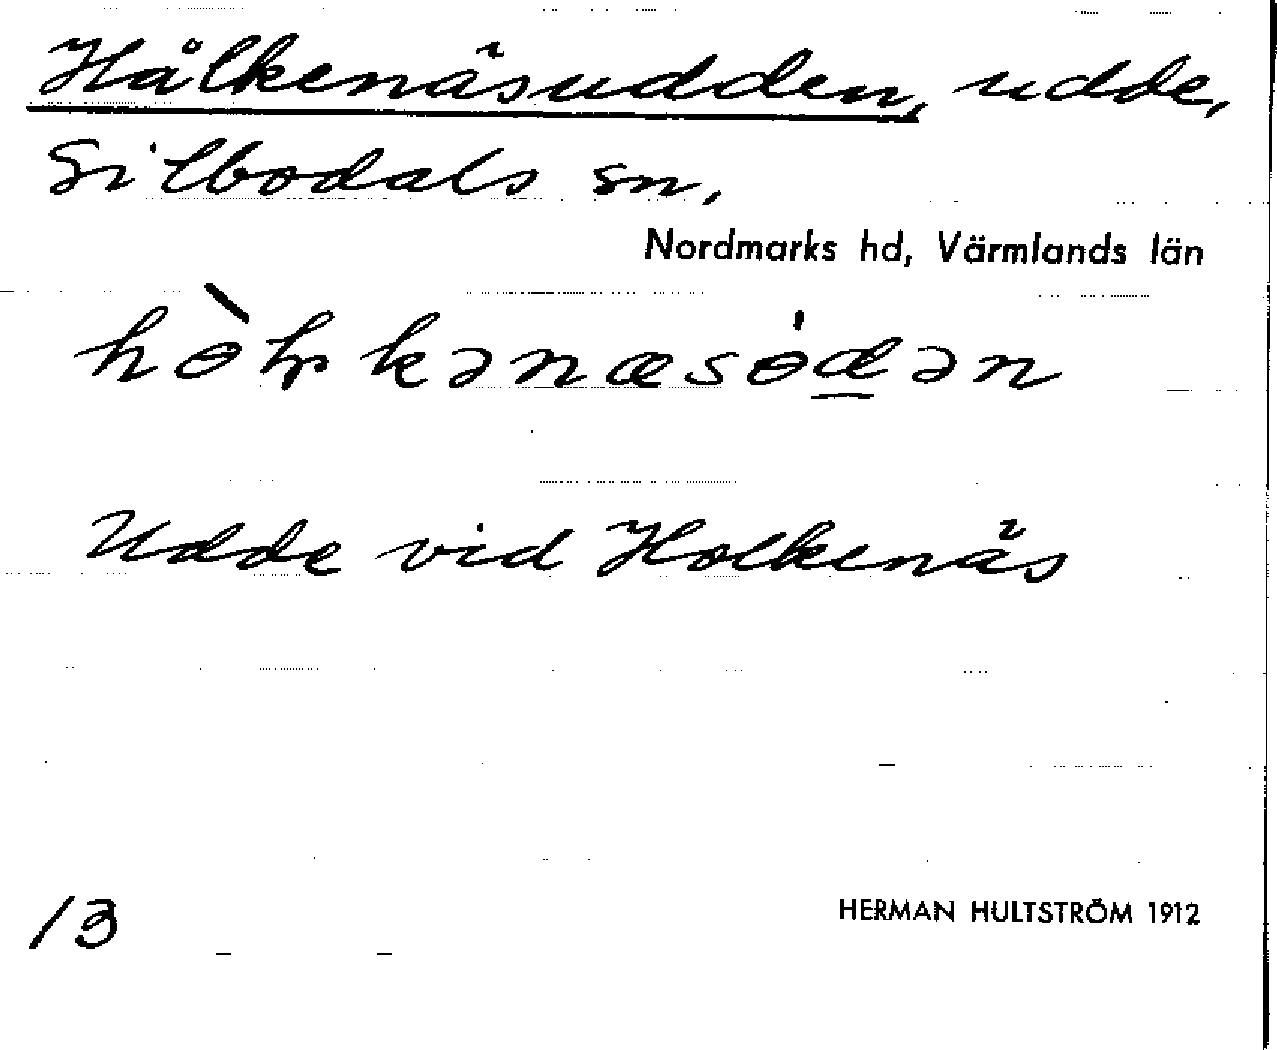 Hålkenäsudden, udde,
Silbodals sn,
Nordmarks hd, Värmlands län
Udde vid Holkenäs
13
HERMAN HULTSTRÖM 1912